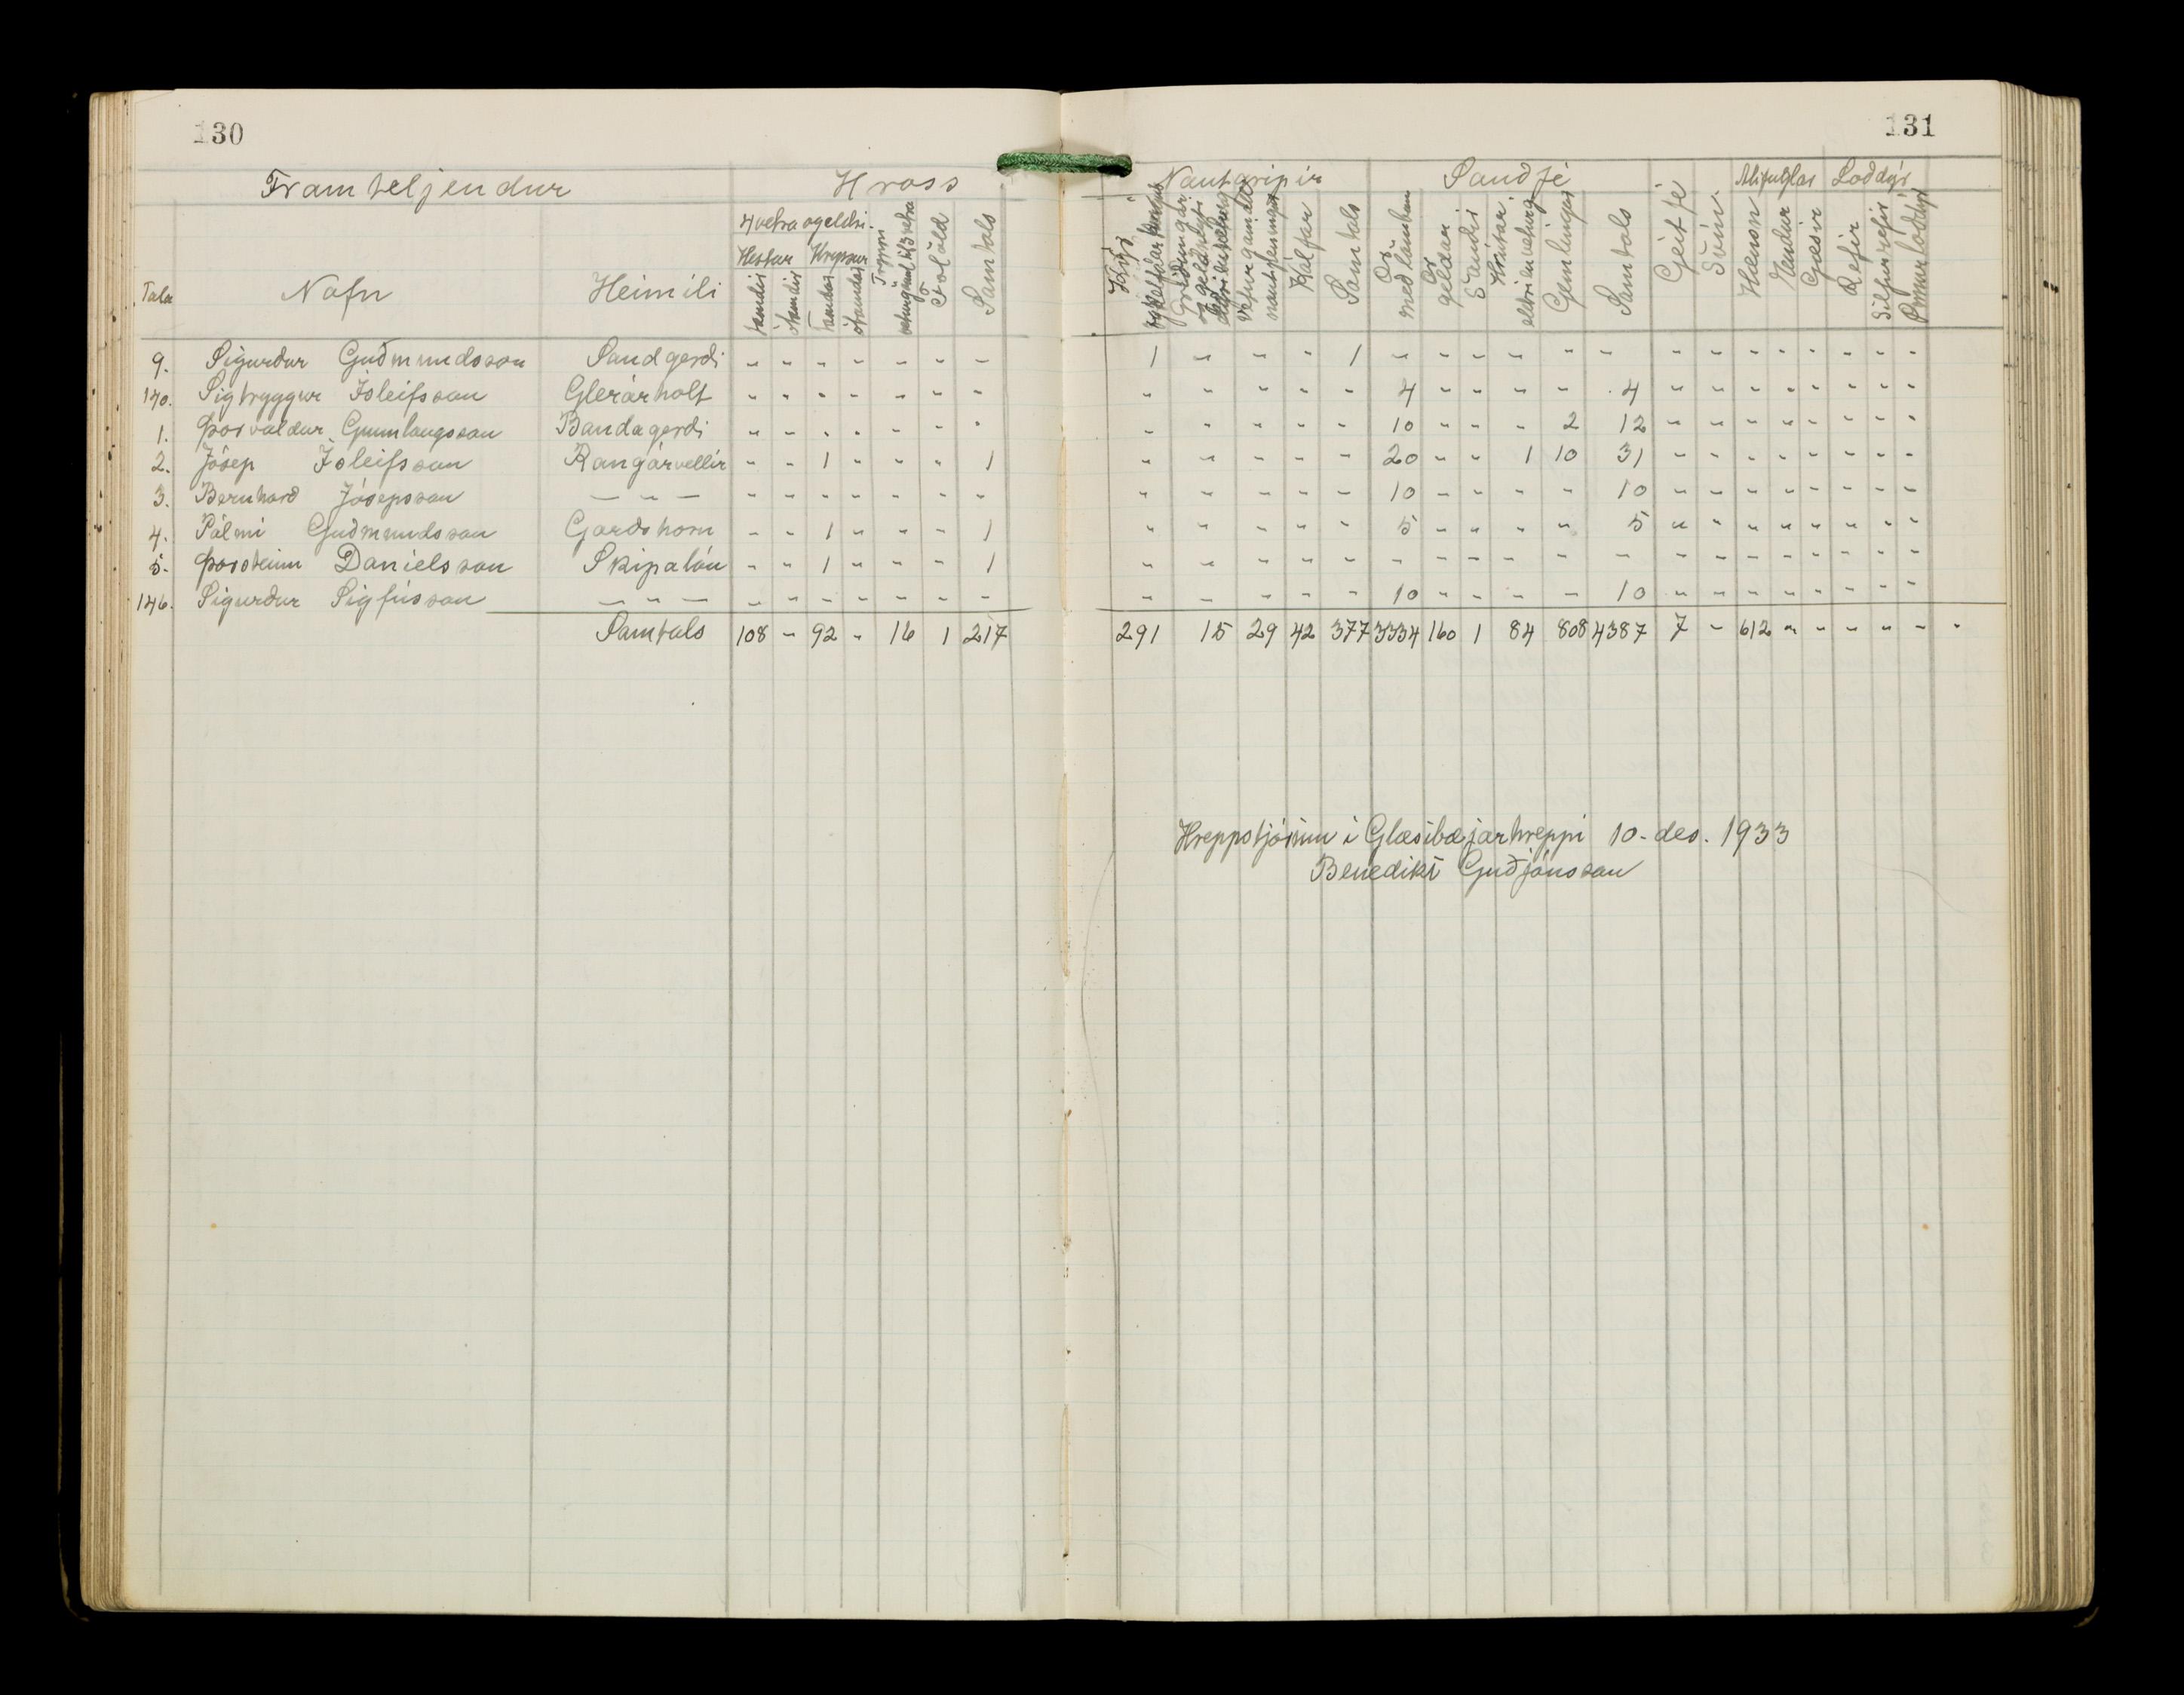 130
Framteljendur Hross
4 vetra og eldri.
Hestar Hryssur
Tala Nafn Heimili tamdir ótamdir tamdar ótamdar Tryppi Folöld Samtals
9. Sigurður Guðmundsson Sandgerði " " " " " " "
140. Sigtryggur Ísleifsson Glerárholt " " " " " " "
1. Þorvaldur Gunnlaugsson Bandagerði " " " " " " "
2. Jósep Ísleifsson Rangárvellir " " 1 " " " 1
3. Bernharð Jósepsson — " — " " " " " " "
4. Pálmi Guðmundsson Garðshorn " " 1 " " " 1
5. Þorsteinn Daníelsson Skipalón " " 1 " " " 1
146. Sigurður Sigfússon — " — " " " " " " "
Samtals 108 " 92 " 16 1 217
131
Nautgripir Sauðfé Alifuglar Loðdýr
Kýr Kálfar Samtals Ær með lömbum Ær geldar Sauðir Hrútar eldri en veturg Gemlingar Samtals Geitfé Svín Hænsn Endur Gæsir Refir Silfurrefir Önnur loðdýr
1 " " " 1 " " " " " " " " " " " " " "
" " " " " 4 " " " " 4 " " " " " " " "
" " " " " 10 " " " 2 12 " " " " " " " "
" " " " " 20 " " 1 10 31 " " " " " " " "
" " " " " 10 " " " " 10 " " " " " " " "
" " " " " 5 " " " " 5 " " " " " " " "
" " " " " " " " " " " " " " " " " " "
" " " " " 10 " " " " 10 " " " " " " " "
291 15 29 42 377 3334 160 1 84 808 4387 7 " 612 " " " " " "
Hreppstjórinn í Glæsibæjarhreppi 10. des. 1933
Benedikt Guðjónsson